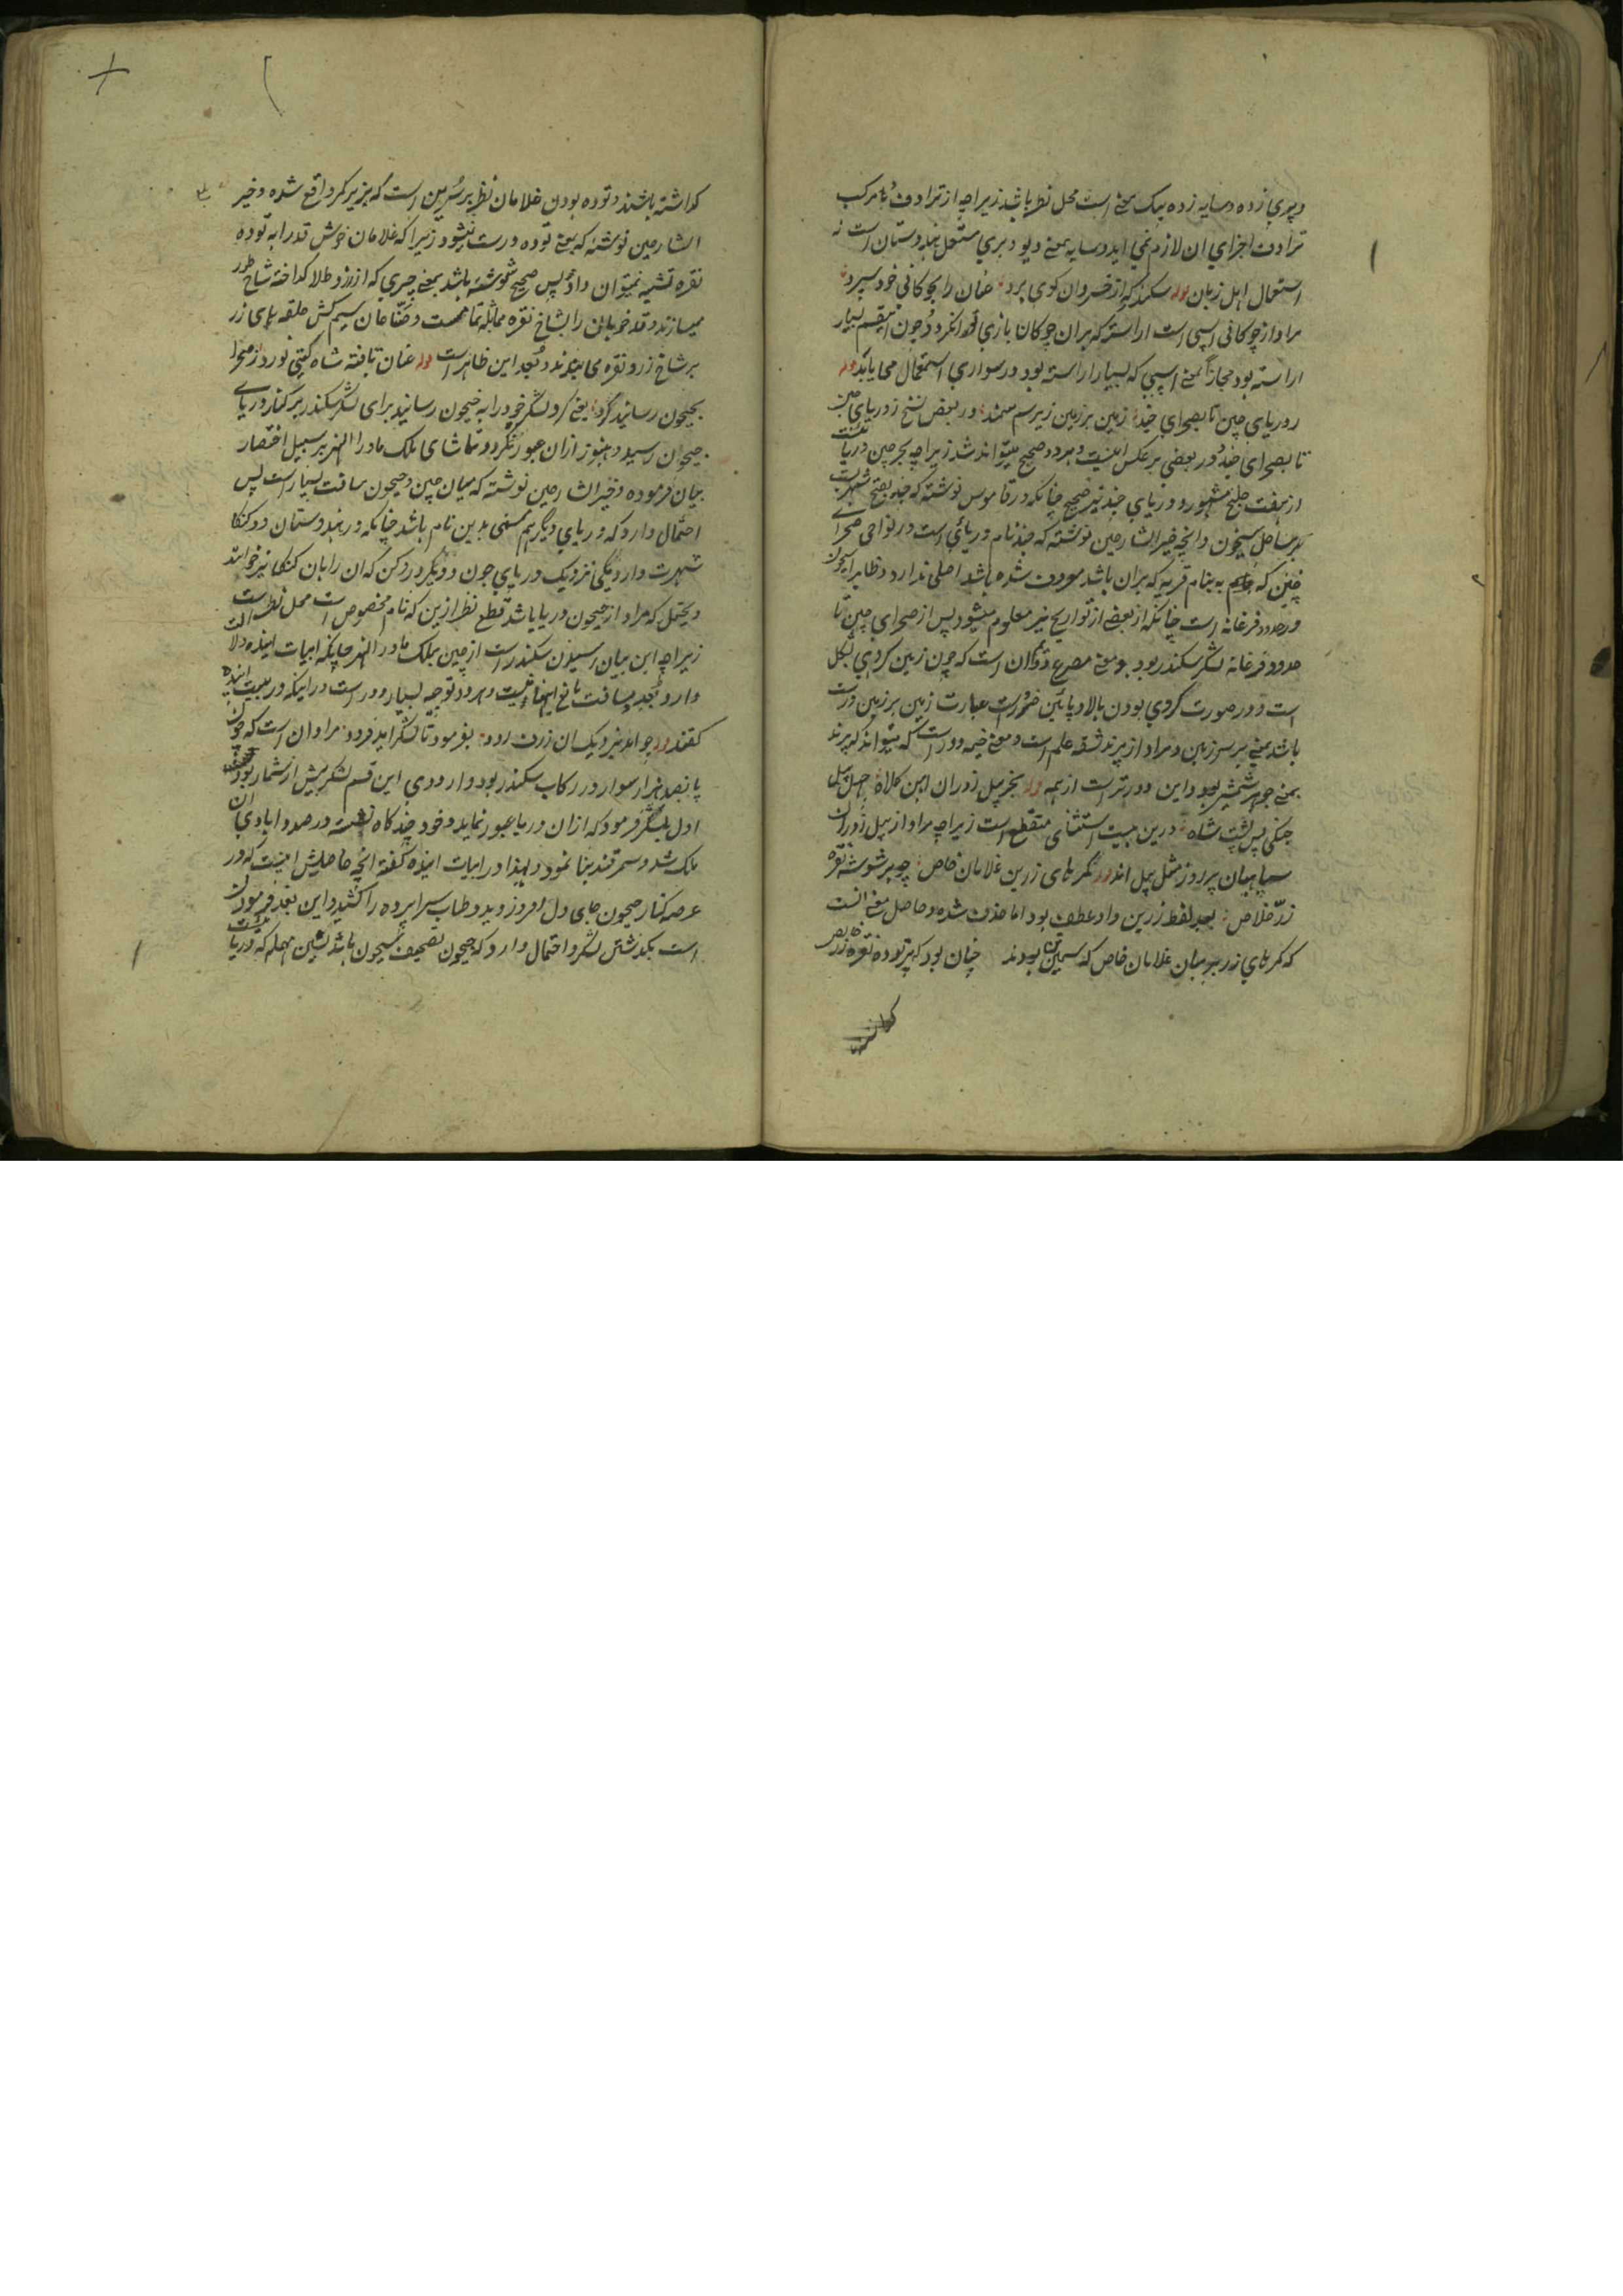 و پری زده و سایه زده بیک معنی است محل نظر باشد زیرا چه از ترادف دو مرکب
ترادف اجزای ان لازم نمی اید و سایه بمعنی دیو و پری مستعمل هندوستان است نه
استعمال اهل زبان وله سکندر که از خسروان کوی برد عنان را بچوکانی خود سپرد
مراد از چوکانی اسپی است اراسته که بران چوکان بازی توانکرد و چون اینقسم بسیار
اراسته بود مجازا بمعنی اسپی که بسیار اراسته بود و در سواری استعمال می یابد وله
ز دریای چین تا بصحرای جند زمین بر زمین زیر سم سمند و در بعض نسخ ز دریای چین
تا بصحرای جند و در بعضی بر عکس اینست و هر دو صحیح میتواند شد زیرا چه بحر چین دریائیست
از هفت خلیج مشهور و دریای جند نیز صحیح چنانکه در قاموس نوشته که جند بفتح شهریست
بر ساحل سیحون و انچه خیر الشارحین نوشته که جند نام دریای است در نواحی صحرای
چین که بنام قریه که بران باشد معروف شده باشد اصلی ندارد و ظاهرا سیحون
در حدود فرغانه است چنانکه از بعضی از تواریخ نیز معلوم میشود پس از صحرای چین تا
حدود فرغانه لشکر سکندر بود و معنی مصرع دوم ان است که چون زمین کروی الشکل
است و در صورت کروی بودن بالا و پائین ضرورت عبارت زمین بر زمین درست
باشد یعنی بر سر زمین و مراد از پرند شقه علم است و معنی خیمه دور است که میتواند که پرند
بمعنی جوهر شمشیر بود و این دورتر است از همه وله بجز پیل زوران اهن کلاه چهل پیل
جنکی پس پشت شاه درین بیت استثنای منقطع است زیرا چه مراد از پیل زوران
سپاهیان پر زور مثل پیل اند وله کمرهای زرین غلامان خاص چو بر شوشه نقره
زرّ خلاص بعد لفظ زرین واو عطف بود اما حذف شده و حاصل معنی انست
که کمرهای زر بر میان غلامان خاص که سیمین تن بودند چنان بود که بر توده نقره زر خالص
کذاشته باشند و توده بودن غلامان نظر بر سرین است که بزیر کمر واقع شده و خیر
الشارحین نوشته که معنی توده درست نمیشود زیرا که غلامان خوش قد را به توده
نقره تشبیه نمیتوان داد پس صحیح شوشه باشد بمعنی چیزی که از زر و طلا کداخته شاخ طور
میسازند و قد خوبان را بشاخ نقره مماثلة تمام هست و صنّاعان سیم کش حلقه های زر
بر شاخ زر و نقره می بندند و بُعد این ظاهر است وله عنان تافته شاه کیتی نورد ز صحرا
بجیحون رسانید کرد یعنی کرد لشکر خود را به جیحون رسانید برای لشکر سکندر بر کنار دریای
جیحون رسید و هنوز ازان عبور نکرده و تماشای ملک ماورا النهر بر سبیل اختصار
بیان فرموده و خیر الشارحین نوشته که میان چین و جیحون مسافت بسیار است پس
احتمال دارد که دریای دیکر هم مسمی بدین نام باشد چنانکه در هندوستان دو کنکا
شهرت دارد یکی نزدیک دریای جون و دیکر در دکن که ان را بان کنکا نیز خوانند
و یحتمل که مراد از جیحون دریا باشد قطع نظر ازین که نام مخصوص است محل نظر است
زیرا چه این بیان رسیدن سکندر است از چین بملک ماورا النهر چنانکه ابیات اینده دلالت
دارد و بُعد مسافت مانع اینها نیست و هر دو توجیه بسیار دور است در اینکه در بیت اینده
کفته وله چو امد بنزدیک ان ژرف رود بفرمود تا لشکر اید فرود مراد ان است که چون
پانصد هزار سوار در رکاب سکندر بود و اردوی این قسم لشکر بیش از شمار بود
اول بلشکر فرمود که ازان دریا عبور نماید و خود چند کاه نشسته در صدد ابادی ان
ملک شد و سمرقند بنا نمود و لهذا در ابیات اینده کفته انچه حاصلش اینست که در
عرصه کنار جیحون جای دل افروز دید و طناب سراپرده را کشید و این بعد فرمودن
است بکذشتن لشکر و احتمال دارد که جیحون تصحیف سیحون باشد بسین مهمله که دریائیست